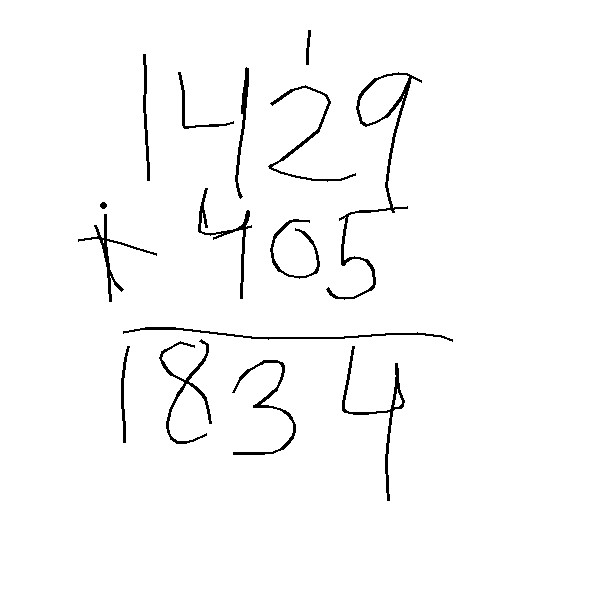 1
1429
+ 405
1834